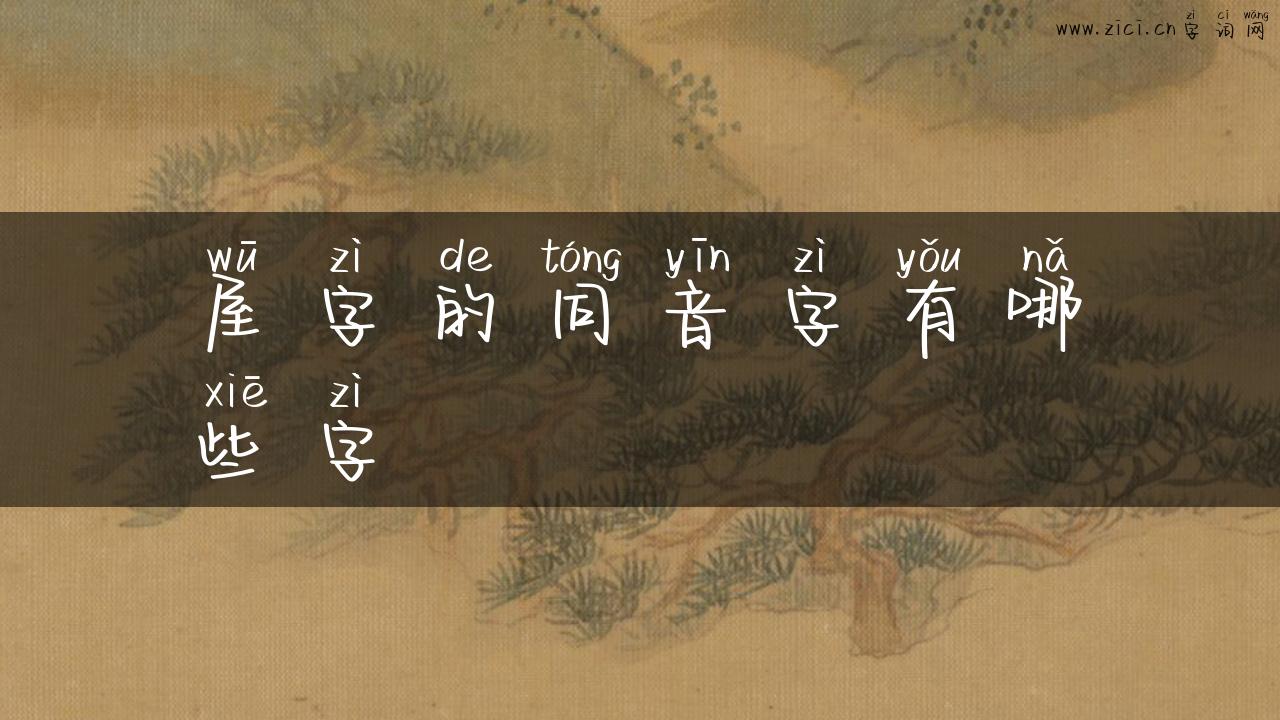 zì cí wǎng
www.zici.cn 字词网
wū zì de tóng yīn zì yǒu nǎ
屋字的同音字有哪
xiē zì
些字